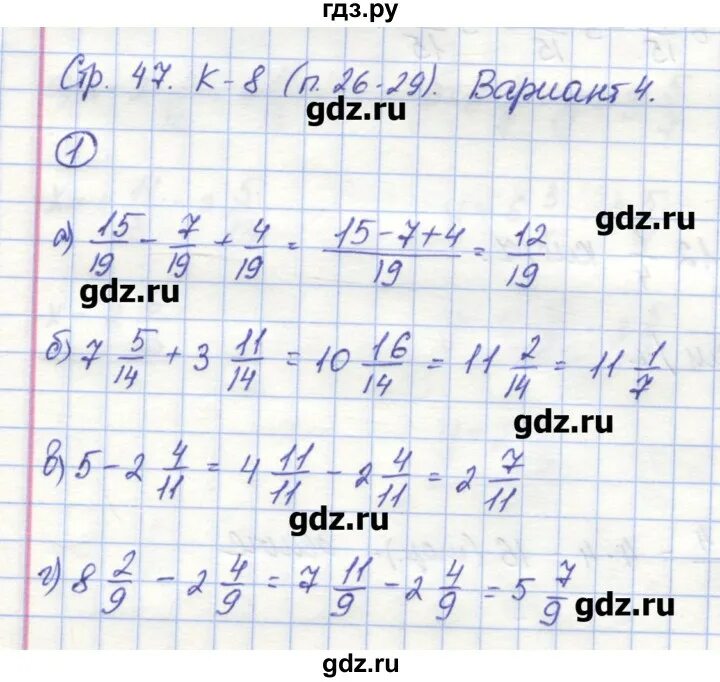 гдз.ру
Стр. 47. К-8 (п. 26-29). Вариант 4.
gdz.ru
1
gdz.ru
а) 15/19 - 7/19 + 4/19 = (15-7+4)/19 = 12/19
gdz.ru
б) 7 5/14 + 3 11/14 = 10 16/14 = 11 2/14 = 11 1/7
gdz.ru
в) 5 - 2 4/11 = 4 11/11 - 2 4/11 = 2 7/11
gdz.ru
г) 8 2/9 - 2 4/9 = 7 11/9 - 2 4/9 = 5 7/9
gdz.ru
gdz.ru